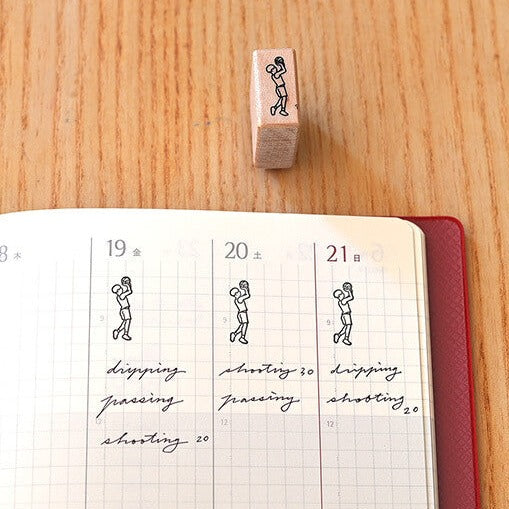 8 木
19 金
9
dripping
passing
12
shooting 20
20 土
9
shooting 30
passing
12
21 日
9
dripping
shooting 20
12